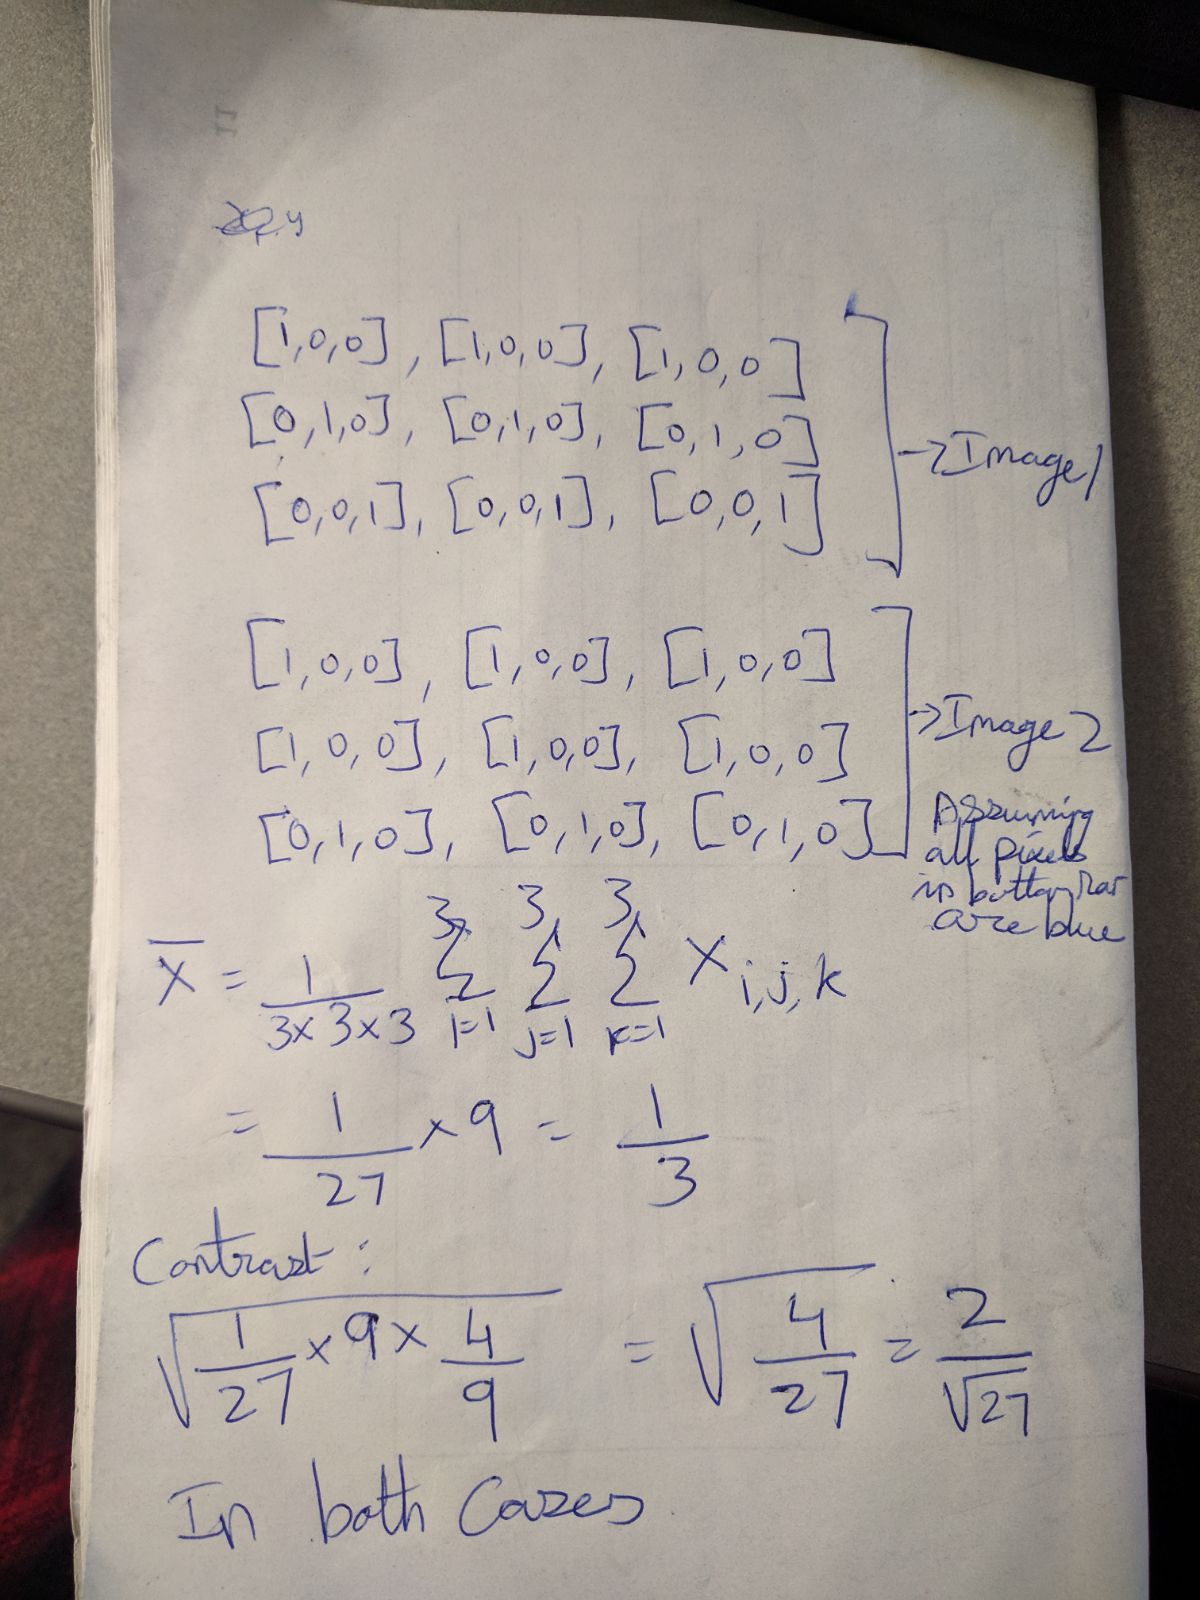 [1,0,0], [1,0,0], [1,0,0]
[0,1,0], [0,1,0], [0,1,0]
→ Image 1
[0,0,1], [0,0,1], [0,0,1]
[1,0,0], [1,0,0], [1,0,0]
[1,0,0], [1,0,0], [1,0,0]
→ Image 2
[0,1,0], [0,1,0], [0,1,0]
Assuming
all pixels
in bottom
are blue
X̄ = 1/(3x3x3) Σ_{i=1}^{3} Σ_{j=1}^{3} Σ_{k=1}^{3} X_{i,j,k}
= 1/27 × 9 = 1/3
Contrast:
√(1/27 × 9 × 4/9) = √(4/27) = 2/√27
In both Cases